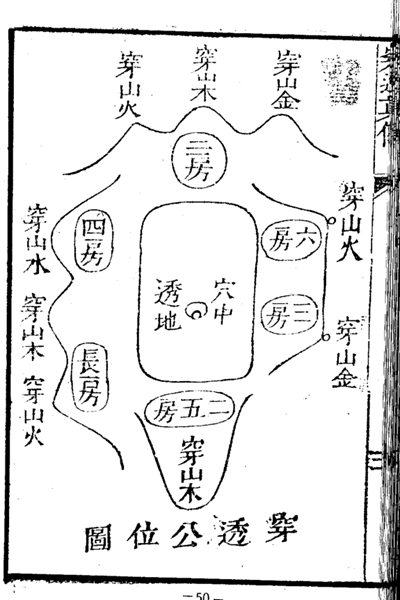 穿山金
穿山木
穿山火
房
穿山火
六房
三房
穿山金
穴中
透地
四房
長房
穿山水
穿山木
穿山火
二五房
穿山木
穿透公位圖
— 50 —